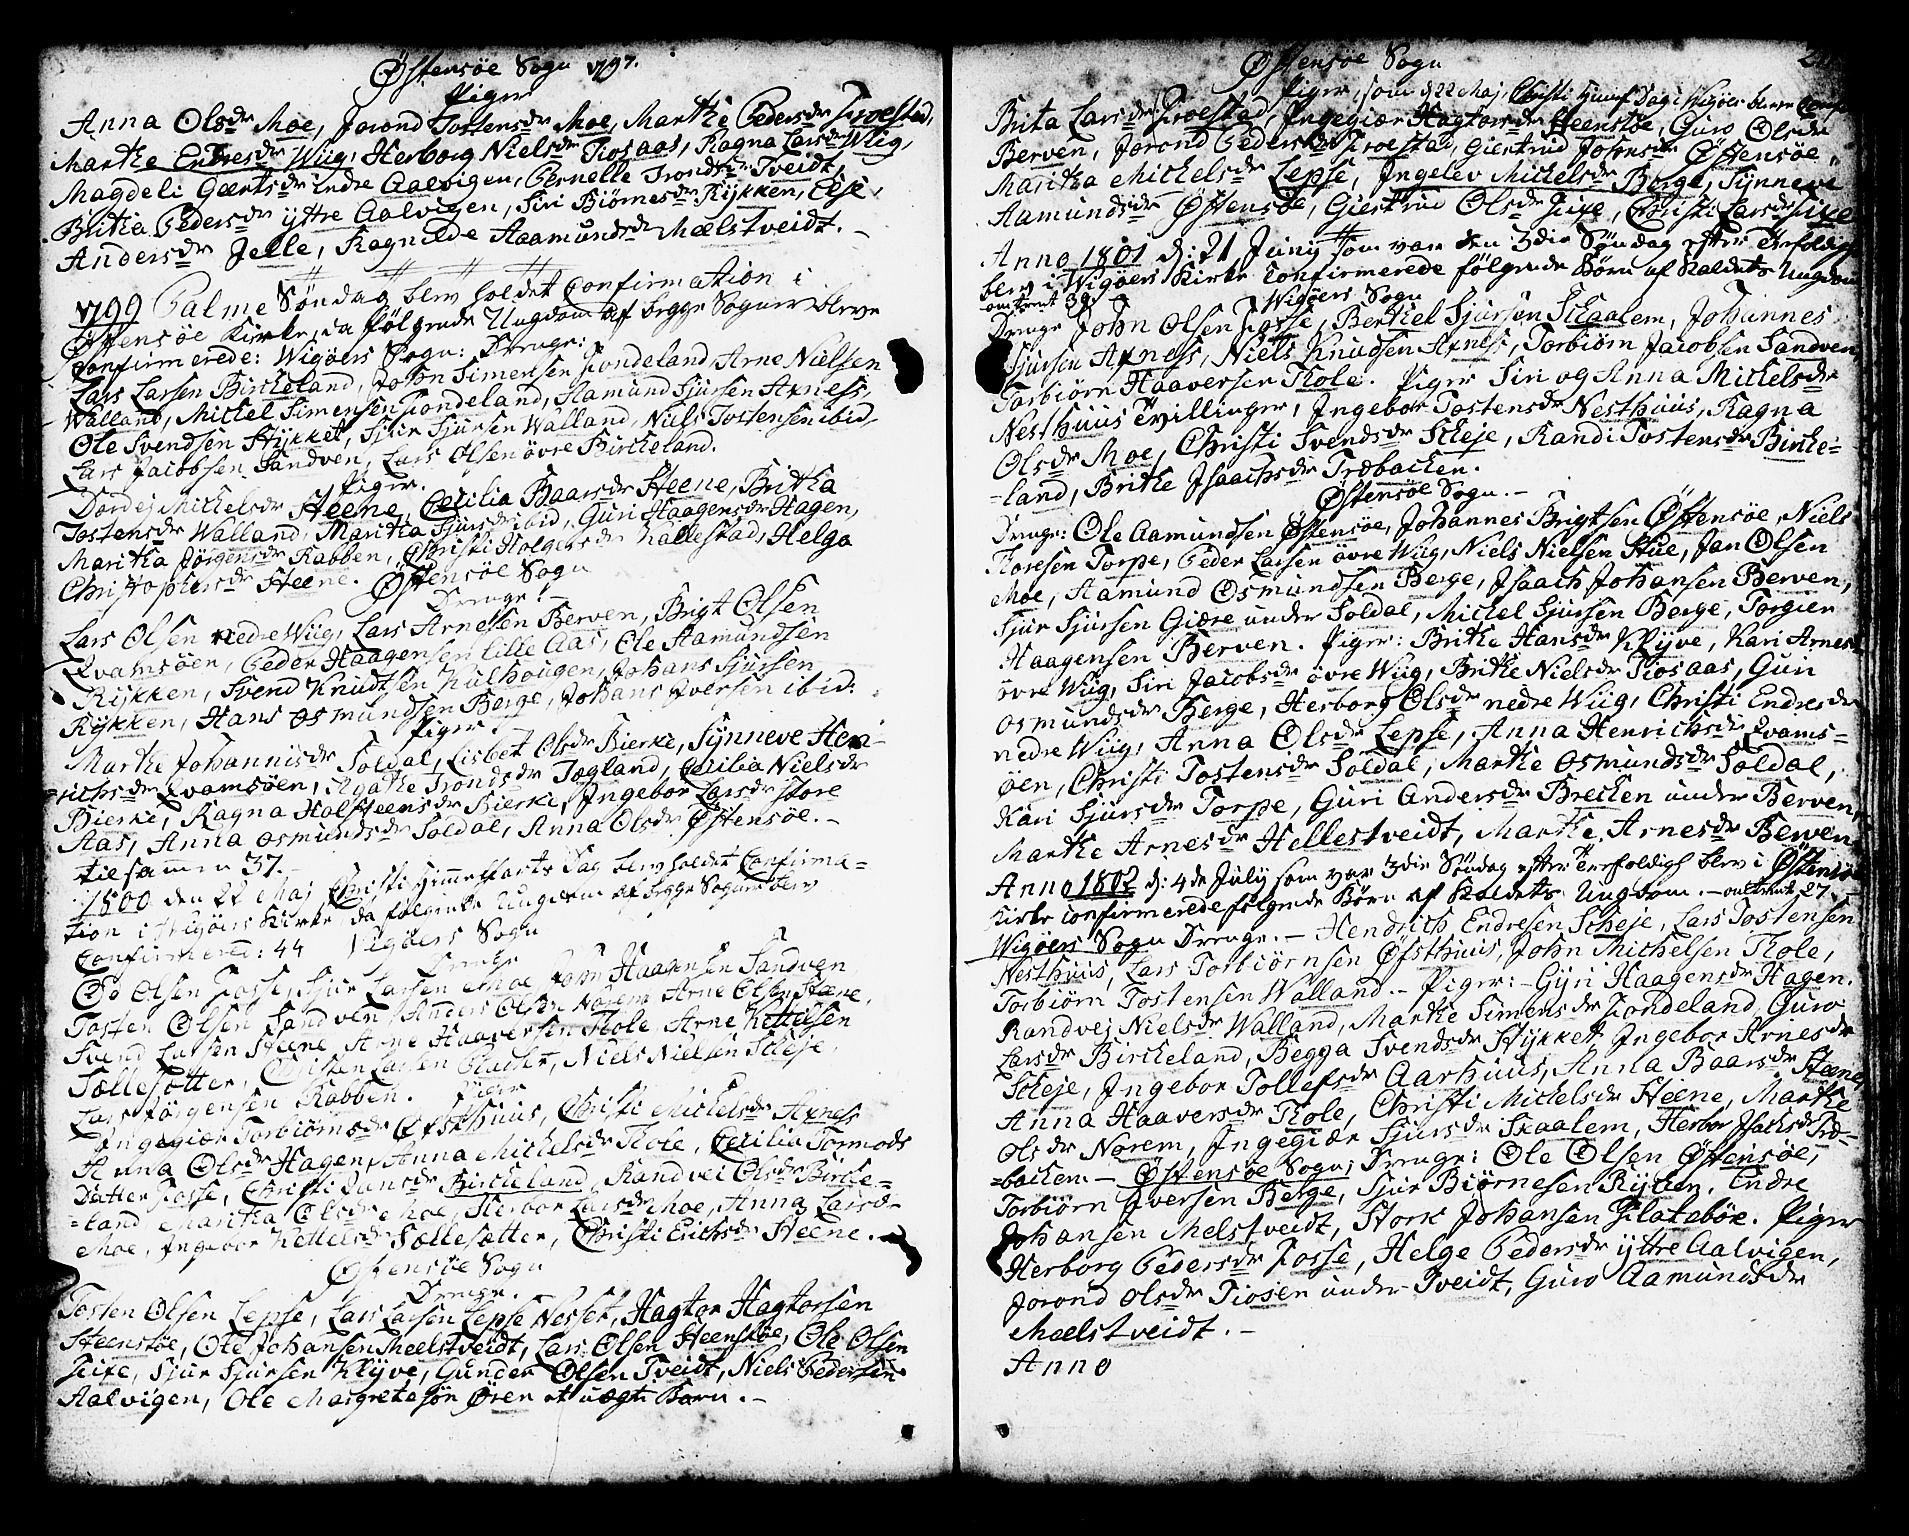 Østensøe Sogn 1797.
Piger
Anna Olsdr Moe, Jorond Tostensdr Moe, Marthe Pedersdr Froestad,
Marthe Endresdr Wiig, Herborg Nielsdr Tiosaas, Ragna Larsdr Wiig,
Magdeli Giertsdr indre Aalvigen, Pernelle Trondsdr Tveidt,
Britha Pedersdr yttre Aalvigen, Siri Biørnesdr Rykken, Else
Andersdr Jelle, Ragnilde Aamundsdr Mælstveidt. -
1799 Palme Søndag blev holdet Confirmation i
Østensøe Kirke, da følgende Ungdom af begge Sogner bleve
Confirmerede: Wigøers Sogn: Drenge:
Lars Larsen Bircheland, John Simensen Fondeland, Arne Nielsen
Walland, Michel Simensen Fondeland, Aamund Sjursen Axness,
Ole Svendsen Stykket, Sjur Sjursen Walland, Niels Tostensen ibid,
Lars Jacobsen Sandven, Lars Olsen øvre Bircheland.
Piger.
Dordej Michelsdr Steene, Cecilia Baarsdr Steene, Britha
Tostensdr Walland, Maritha Sjursdr ibid, Guri Haagensdr Hagen,
Maritha Jørgensdr Rabben, Christi Holgersdr Nallestad, Helga
Christophersdr Steene. Østensøe Sogn
Drenge: -
Lars Olsen nedre Wiig, Lars Arnesen Berven, Brigt Olsen
Qvamsøen, Peder Haagensen lille Aas, Ole Aamundsen
Rykken, Svend Knudtsen Kulhougen, Johans Sjursen
Rykken, Hans Osmundsen Berge, Johans Iversen ibid:
Piger.
Marthe Johannisdr Soldal, Lisbet Olsdr Bierke, Synneve Hen-
richsdr Qvamsøen, Agathe Trondsdr Togland, Cecilia Nielsdr
Bierke, Ragna Halfsteensdr Bierke, Ingebor Larsdr store
Aas, Anna Osmundsdr Soldal, Anna Olsdr Østensøe. -
tilsammen 37.
1800 den 22 Maj Christi Himmelfarts Dag blev holdet Confirma-
tion i Wigøers Kirke da følgende Ungdom af begge Sogner blev
Confirmered: 44 Vigøers Sogn
Drenge
Ole Olsen Fosse, Sjur Larsen Moe, John Haagensen Sandven
Tosten Olsen Sandven, Anders Olsen Norem, Arne Olsen Steene,
Svend Larsen Steene, Arne Haaversen Thole, Arne Kettelsen
Sællesætter, Larsen, Niels Nielsen Scheje,
Lars Jørgensen Rabben. Piger
Ingegiær Torbiørnsdr Øfsthuus, Christi Michelsdr Axness
Anna Olsdr Hagen, Anna Michelsdr Thole, Cecilia Tormods
Datter Fosse, Christi Jansdr Bircheland, Randvei Olsdr Birche-
land Maritha Olsdr Moe, Herbor Larsdr Moe, Anna Larsdr
Moe, Ingebor Kettelsdr Sællesætter, Christi Erichsdr Steene. -
Østensøe Sogn
Drenge. -
Tosten Olsen Lepse, Lars Larsen Lepse Nesset, Hagtor Hagtorsen
Steenstøe, Ole Johansen Mælstveidt, Lars Olsen Steenstøe, Ole Olsen
Fixe, Sjur Sjursen Klyve, Gunder Olsen Tveidt, Niels Pedersen
Aalvigen, Ole Margretesøn Øren et uægte Barn. -
Østensøe Sogn
Piger, som d 22 Maj, Christi Himf. Dag i Wigøer bleve Conf
Brita Larsdr Froestad, Ingegiær Hagtorsdr Steenstøe, Guro Olsdr
Berven, Jorond Pedersdr Froestad, Giertrud Johnsdr Østensøe,
Maritha Michelsdr Lepse, Ingelev Michelsdr Berge, Synneve
Aamundsdr Østensøe, Giertrud Olsdr Fixe, Christi Larsdr Fixe
Anno 1801 d: 21 Junij som var den 3die Søndag efter Trefoldigh
blev i Wigøers Kirke Confirmerede følgende Børn af Kaldets Ungdom
omtrent 39. Wigøers Sogn
Drenge John Olsen Fosse, Berthel Sjursen Skaalem, Johannes
Sjursen Axness, Niels Knudsen Axness, Torbiørn Jacobsen Sandven,
Torbiørn Haaversen Thole. Piger Siri og Anna Michelsdr
Nesthuus Tvillinger, Ingebor Tostensdr Nesthuus, Ragna
Olsdr Moe, Christi Svendsdr Scheje, Randi Tostensdr Birche-
-land, Brithe Isaachsdr Træbacken.
Østensøe Sogn. -
Drenge: Ole Aamundsen Østensøe, Johannes Brigtsen Østensøe, Niels
Thoresen Torpe, Peder Larsen øvre Wiig, Niels Nielsen Hue, Jan Olsen
Moe, Aamund Osmundsen Berge, Isaach Johansen Berven,
Sjur Sjursen Giære under Soldal, Michel Sjursen Berge, Torgier
Haagensen Berven. Piger: Brithe Hansdr Klyve, Kari Arnesdr
øvre Wiig, Siri Jacobsdr øvre Wiig, Brithe Nielsdr Tiosaas, Guri
Osmundsdr Berge, Herborg Olsdr nedre Wiig, Christi Endresdr
nedre Wiig, Anna Olsdr Lepse, Anna Henrichsdr Qvams-
øen, Christi Tostensdr Soldal, Marthe Osmundsdr Soldal,
Kari Sjursdr Torpe, Guri Andersdr Brecken under Berven,
Marthe Arnesdr Hellestveidt, Marthe Arnesdr Berven
Anno 1802 d: 4de July som var 3die Søndag efter Trefoldigh blev i Østensøe
Kirke confirmerede følgende Børn af Kaldets Ungdom. - omtrent 27. -
Wigøers Sogn Drenge. - Hendrich Endresen Scheje, Lars Tostensen
Nesthuus, Lars Torbiørnsen Øfsthuus, John Michelsen Thole,
Torbiørn Tostensen Walland. - Piger: - Gyri Haagensdr Hagen.
Randvej Nielsdr Walland, Marthe Simensdr Fondeland, Guro
Larsdr Bircheland, Begga Svendsdr Stykket, Ingebor Arnesdr
Scheje, Ingebor Tollefsdr Aarhuus, Anna Baarsdr Steene,
Anna Haaversdr Thole, Christi Michelsdr Steene, Marthe
Olsdr Norem, Ingegiær Sjursdr Skaalem, Herbor Isachsdr Træ-
-backen. - Østensøe Sogn; Drenge: Ole Olsen Østensøe,
Torbiørn Iversen Berge, Sjur Biørnesen Rykken, Endre
Johansen Mælstveidt, Stork Johansen Flatebøe. Piger
Herborg Pedersdr Fosse, Helge Pedersdr yttre Aalvigen,
Jorond Olsdr Tiosen under Tveidt, Guro Aamundsdr
Mælstveidt. -
Anno